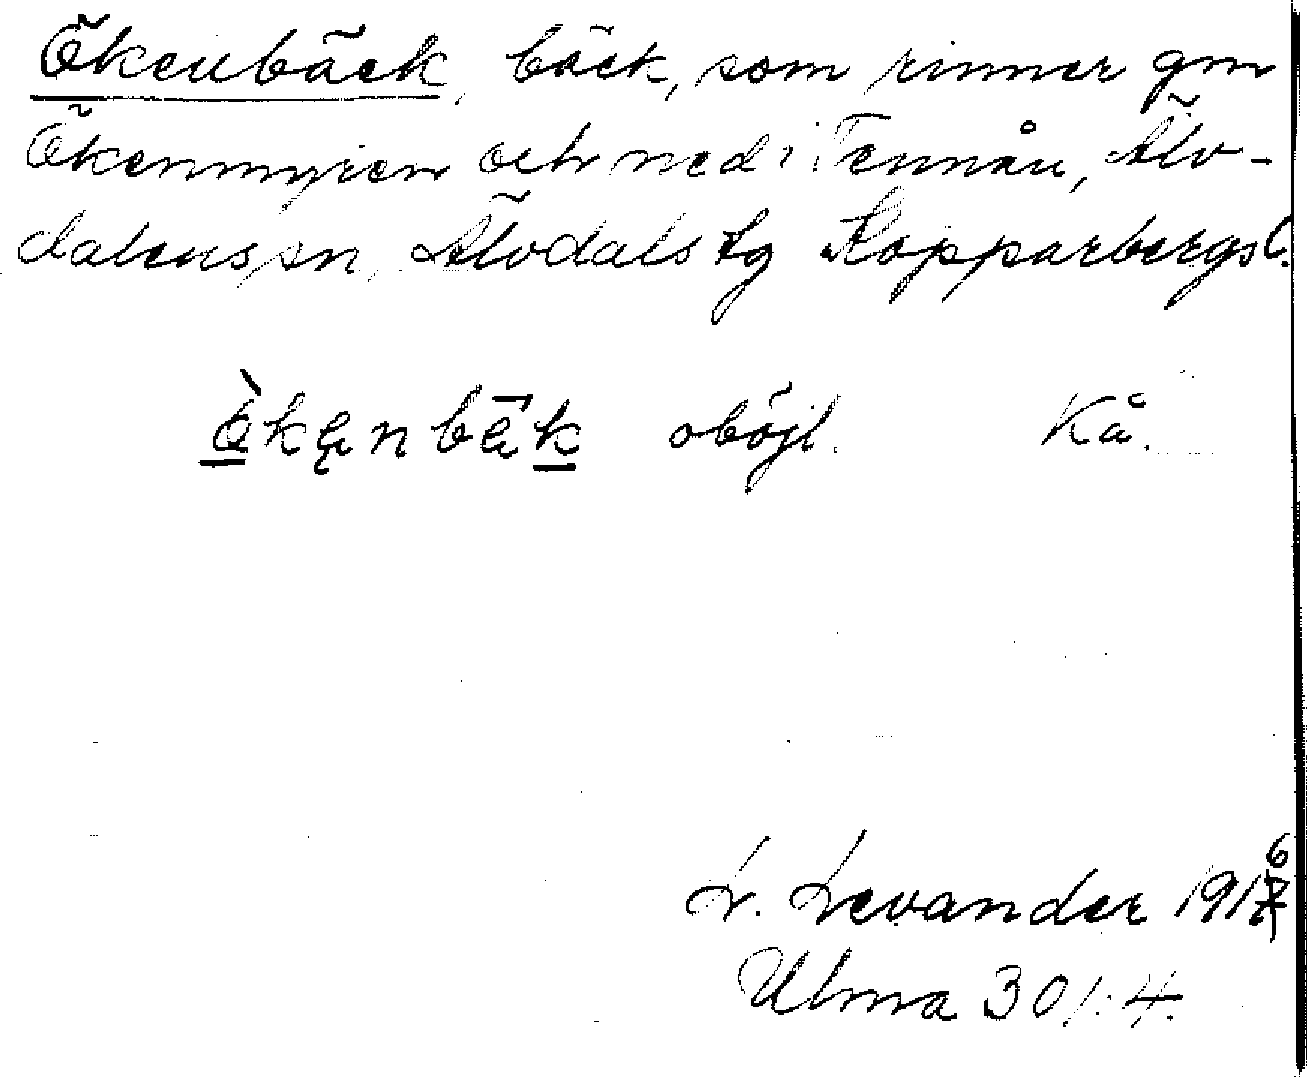 Ökenbäck, bäck, som rinner gm
Ökenmyren och ned i Tennån, Älv-
dalens sn, Älvdals tg Kopparbergs l.
oböjl. Kå.
L. Levander 1916
Ulma 301:4.